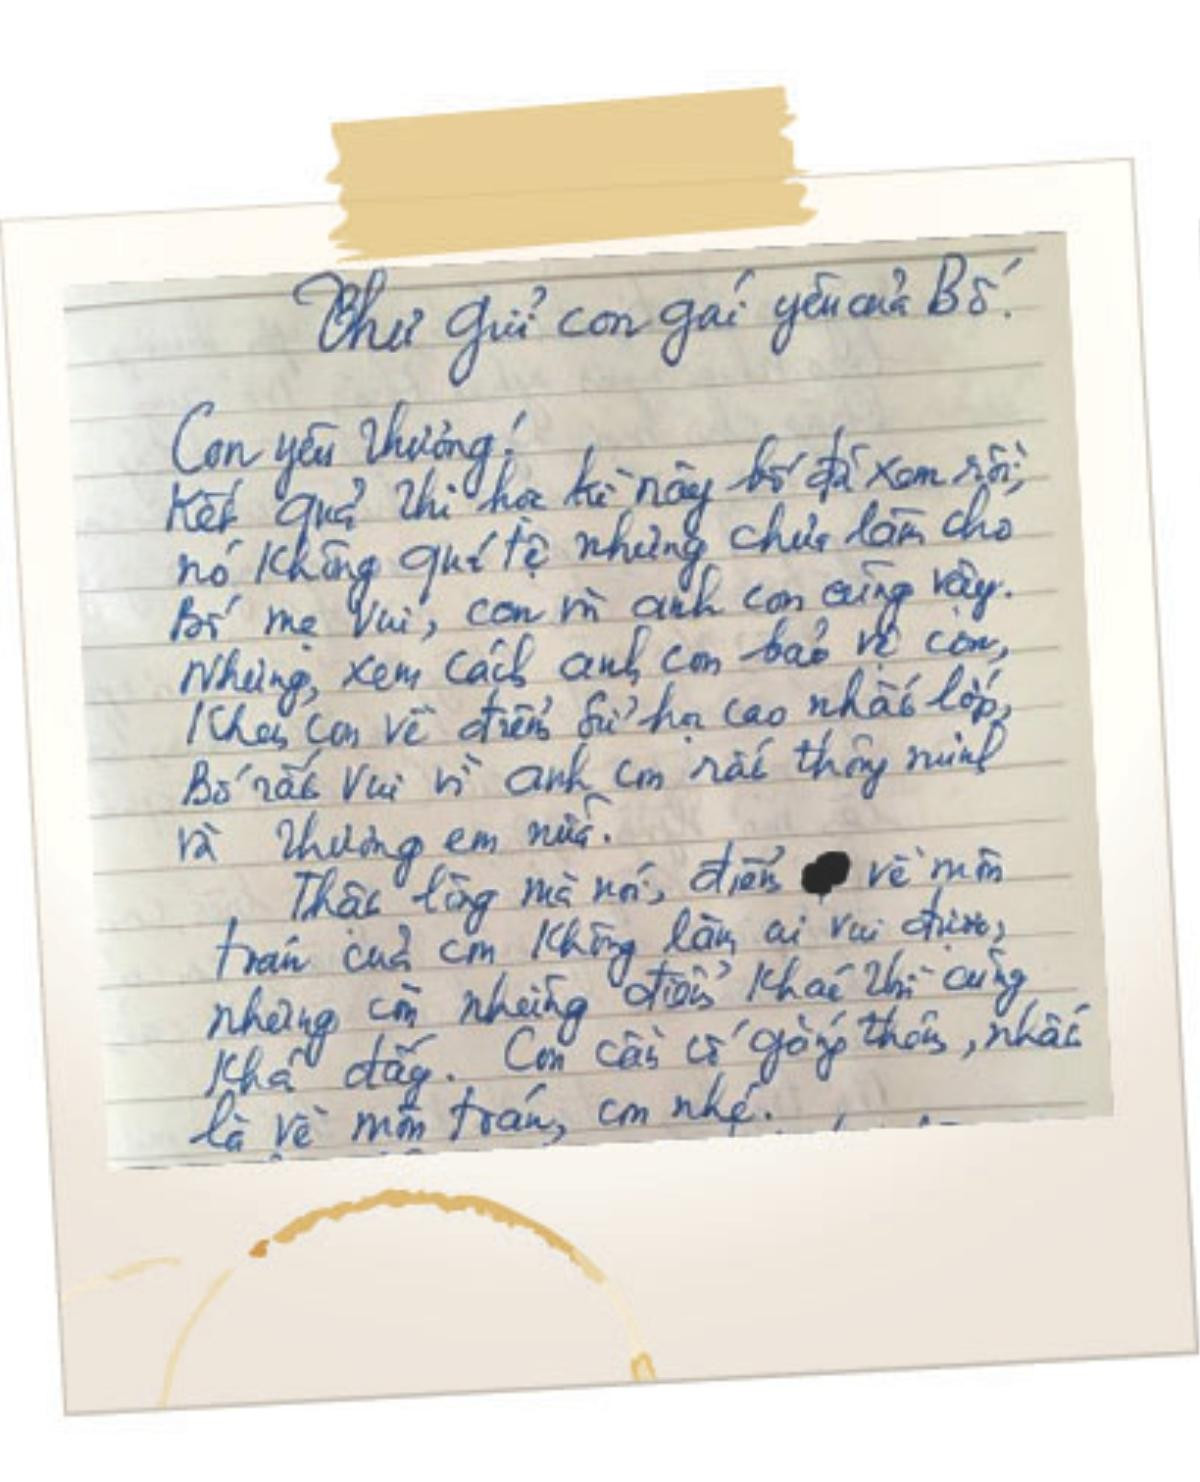 Thư gửi con gái yêu của Bố.
Con yêu thương!
Kết quả thi học kì này bố đã xem rồi,
nó không quá tệ nhưng chưa làm cho
Bố mẹ vui, con và anh con cũng vậy.
Nhưng, xem cách anh con bảo vệ con,
Khoe con về điểm Sử học cao nhất lớp,
Bố rất vui vì anh con rất thông minh
và thương em nữa.
Thật lòng mà nói, điểm về môn
toán của con không làm ai vui được,
nhưng còn những điểm khác thì cũng
khá đấy. Con cần cố gắng thêm, nhất
là về môn toán, con nhé.